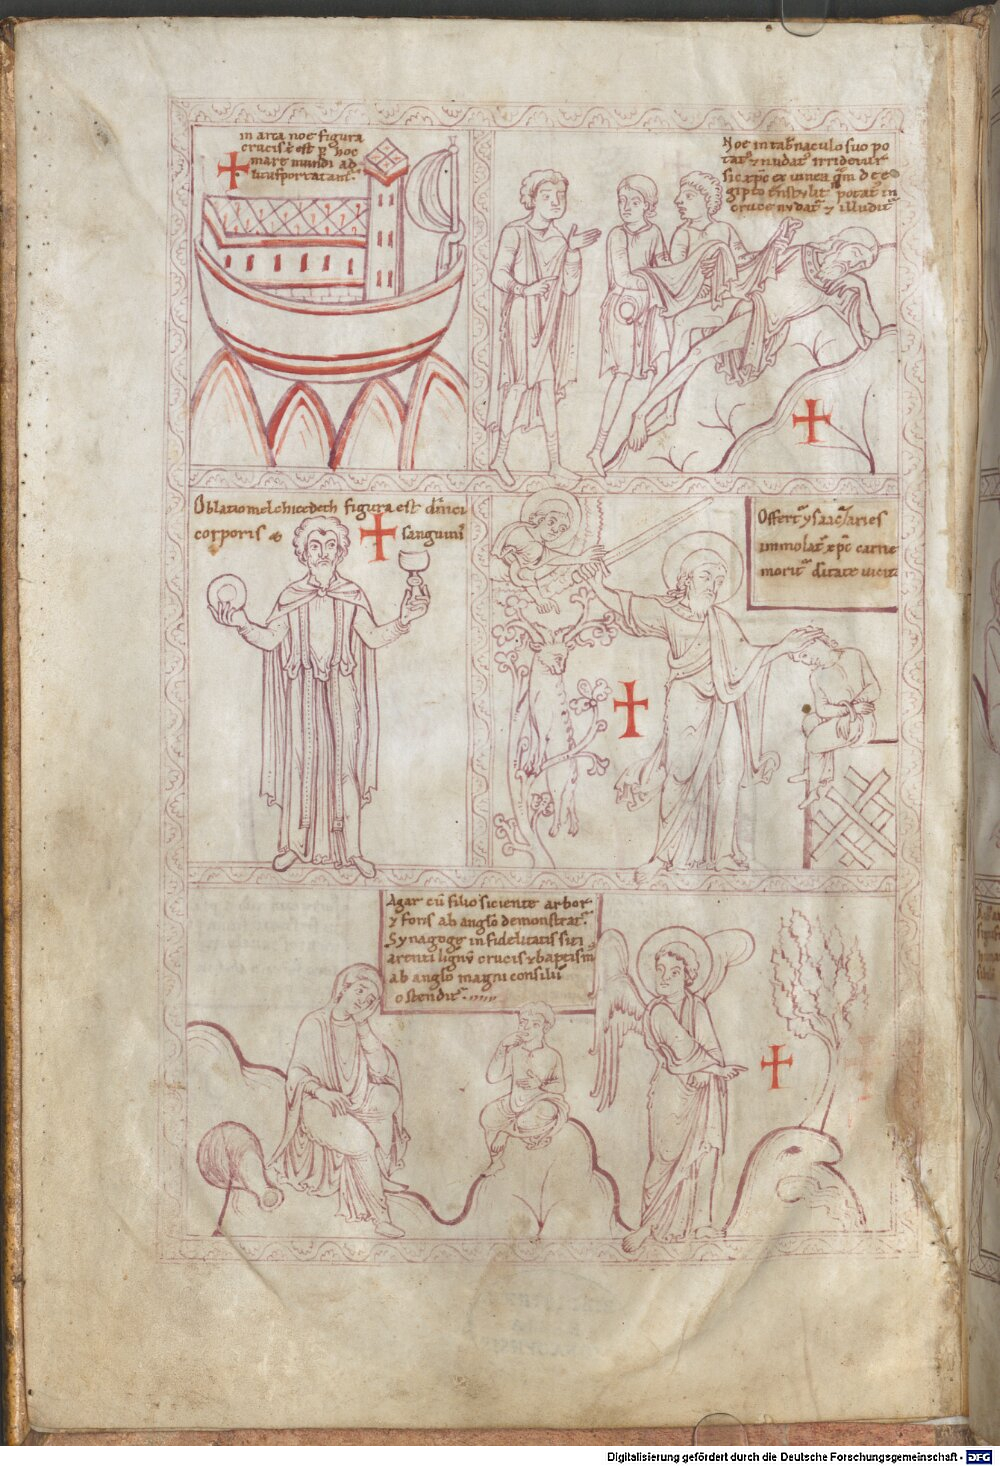 in arca noe figura
crucis ē est p̱ hoc
mare mundi ad
uitā sportatam⁊
Noe in tab̄naculo suo po
tat᷑ ⁊ nudat᷑ irridetur
sic xp̄c ex uinea q̄m de e
gipto tnstulit potat᷑ in
cruce nudat᷑ ⁊ illudit᷑
Oblatio melchicedech figura est dn̄ici
corporis & sanguinis
Offert᷑ ysaac ⁊ aries
immolat᷑ xp̄c carne
morit᷑ ditate uicit
Agar cū filio siciente arbor
⁊ fons ab anglō demonstrat᷑
Synagogę infidelitatis siti
arenti lignū crucis ⁊ baptism̄
ab anglō magni consilii
ostendit᷑
Digitalisierung gefördert durch die Deutsche Forschungsgemeinschaft - DFG